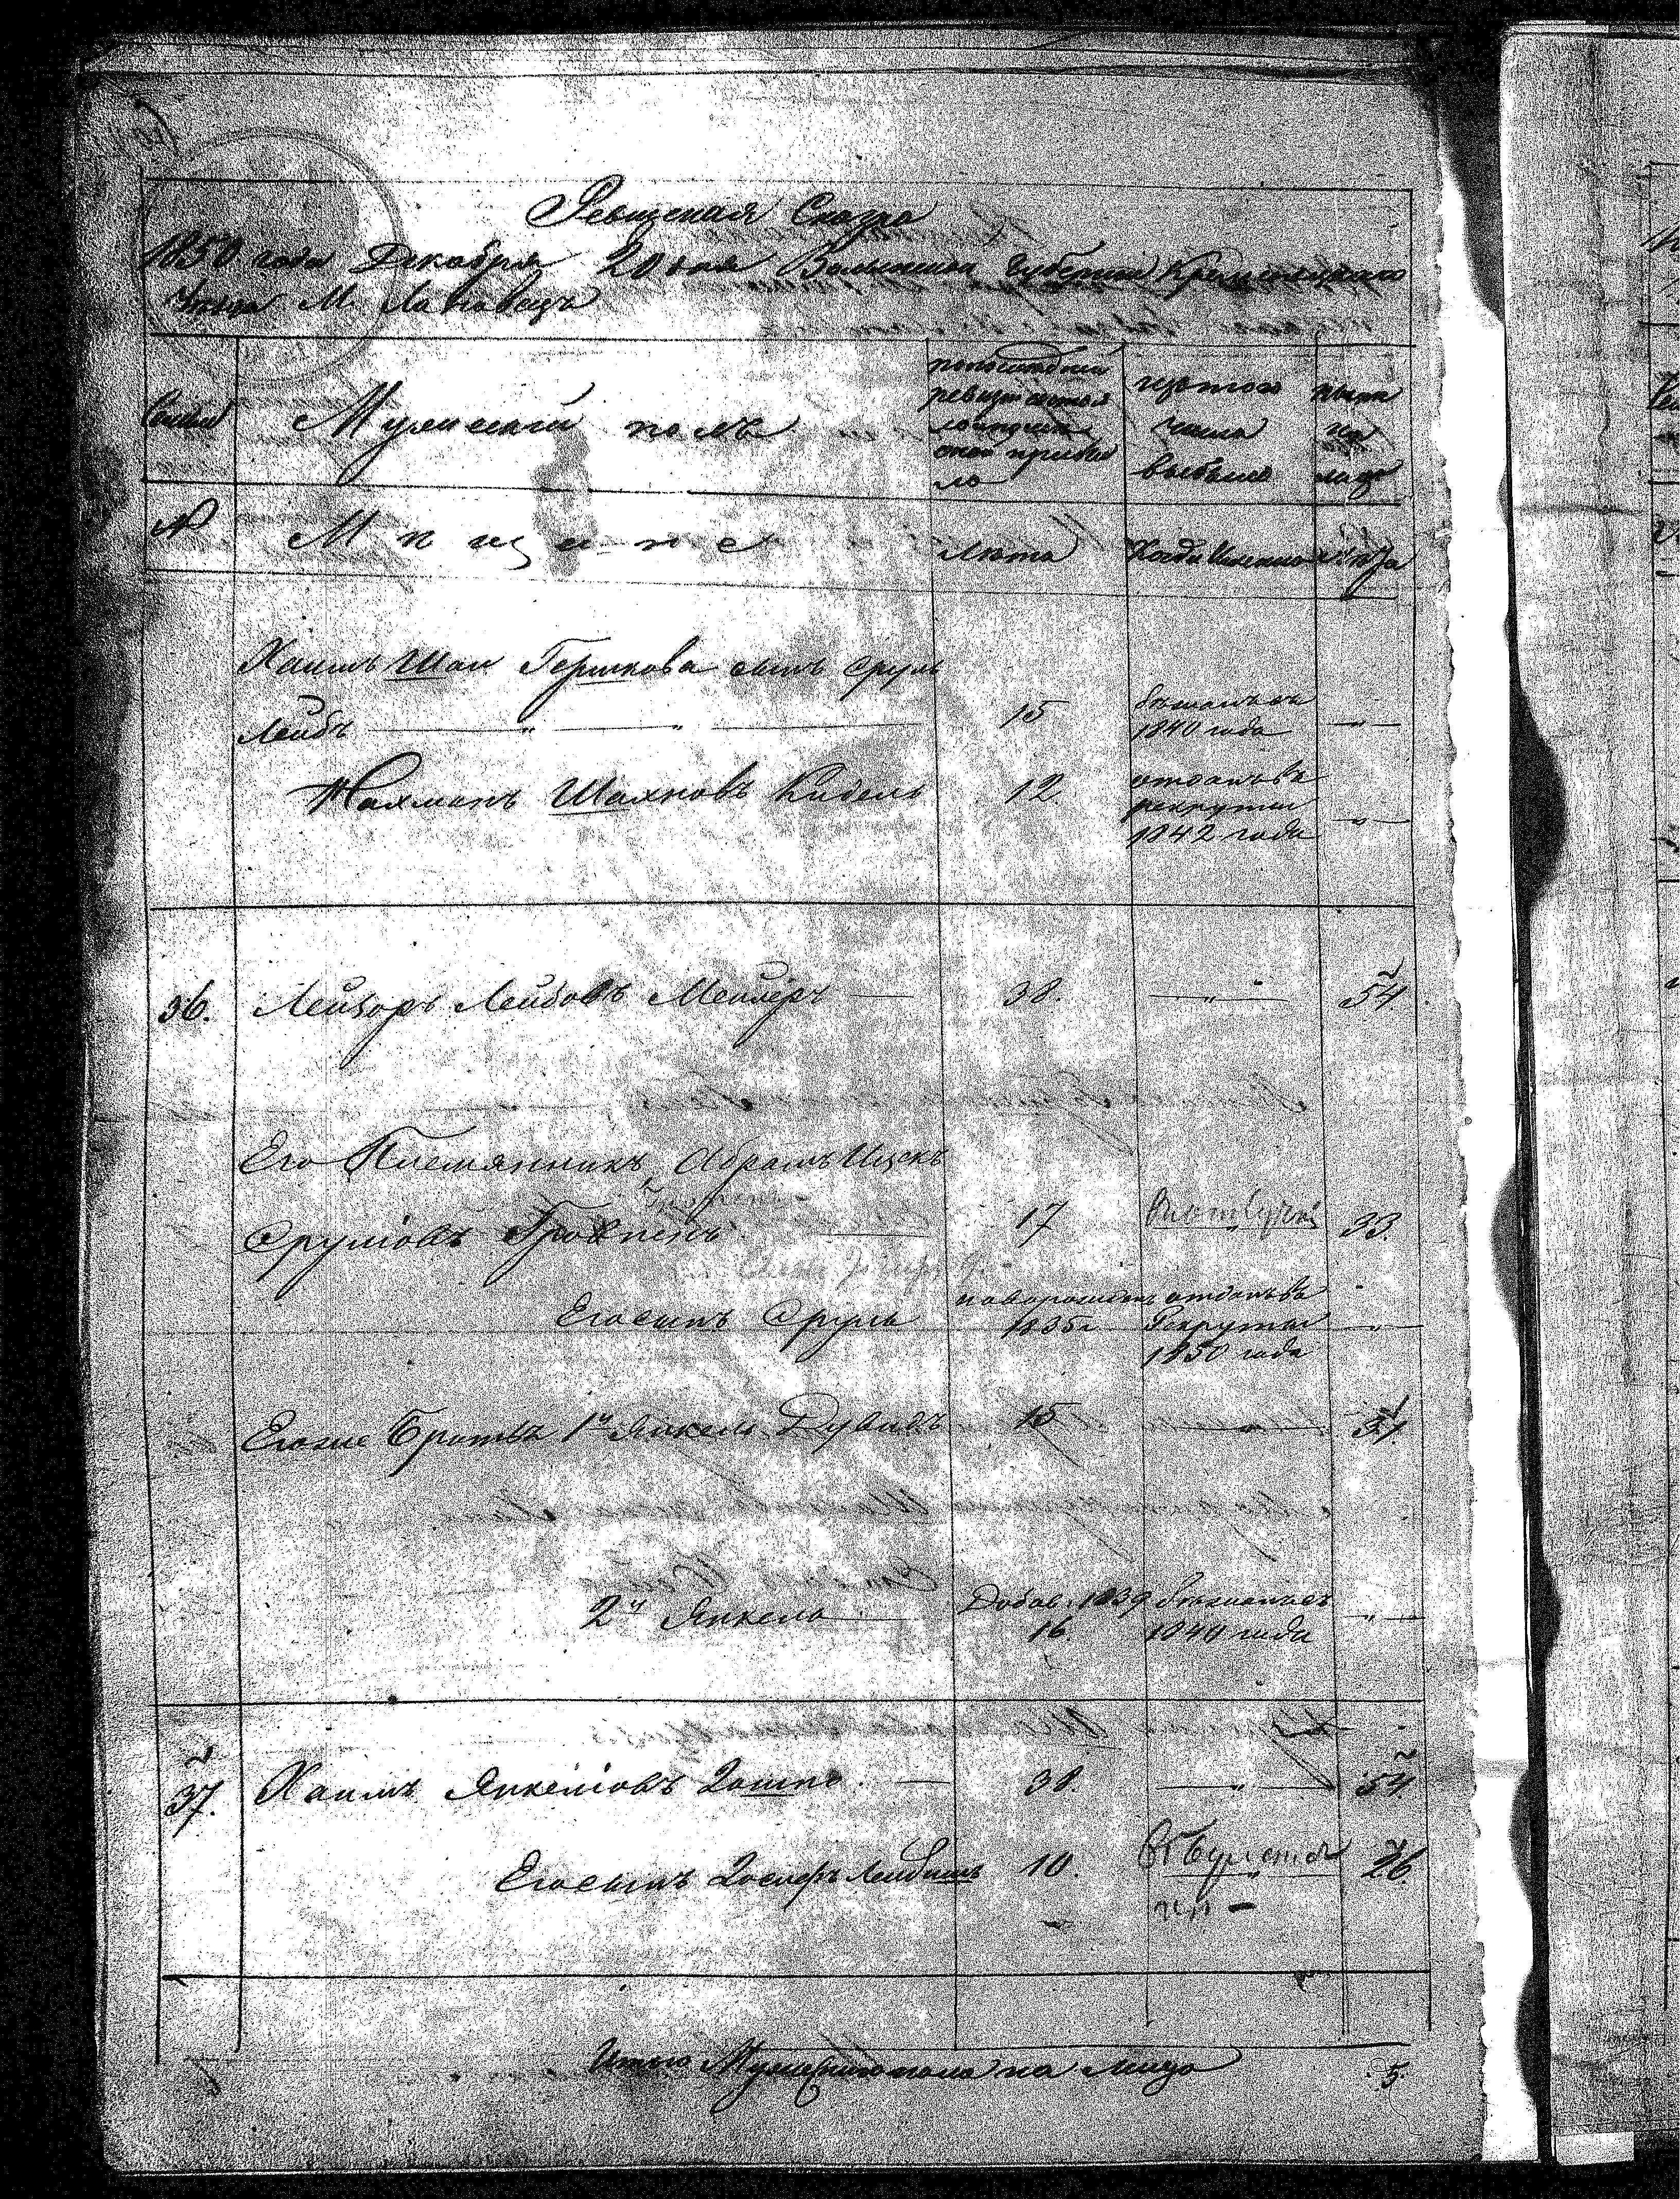 Ревизская Сказка
1850 года Декабря 20 дня Волынской Губернии Кременецкаго
Уезда М. Лановецъ
Семьи
Мужеский полъ
по последней
ревизии состоя
ло и после
оной прибы
ло
изъ того
числа
выбыло
ныне
на
лицо
№
Мещане
Лета
Когда Именно
Лета
Хаимъ Шаи Гершкова сынъ Сруль
Лейбъ — " — " —
15
бежалъ въ
1840 года
— " —
Нахманъ Шахновъ Кидель
12
отданъ въ
рекруты
1842 года
— " —
36.
Лейзоръ Лейбовъ Мейлеръ —
38.
— " —
54.
Его Племянникъ Абрамъ Ицекъ
Сруліовъ
17
33.
Его сынъ Сруль
новорожденъ
1835г
отданъ въ
Рекруты
1850 года
— " —
Его же Братья 1й Янкель Дувидъ
15
— " —
31.
2й Янкель
Добав. 1839
16.
бежалъ въ
1840 года
— " —
37.
Хаимъ Янкеліовъ
38.
— " —
54
Его сынъ Иосифъ Лейбишъ
10.
26.
Итого Мужескаго пола на лицо
5.